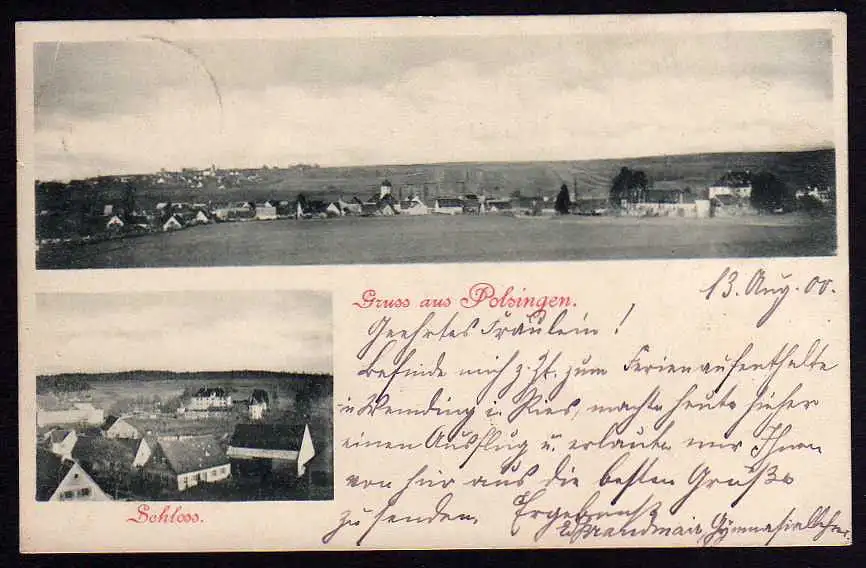 Gruss aus Polsingen.
13. Aug. 00.
Geehrtes Fräulein!
Befinde mich z. Zt. zum Ferienaufenthalte
in Wemding i. Ries, machte heute hieher
einen Ausflug u. erlaube mir Ihnen
von hier aus die besten Grüße
zu senden. Ergebenst
Brandmair, Gymnasiallehrer.
Schloss.